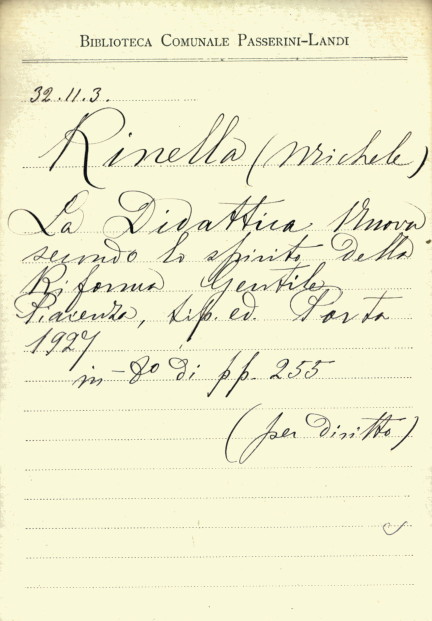 BIBLIOTECA COMUNALE PASSERINI-LANDI
32.11.3.
Rinella (Michele)
La Didattica Nuova
secondo lo spirito della
Riforma Gentile
Piacenza, tip. ed. Porta
1927
in-8º di pp. 255
(per diritto)